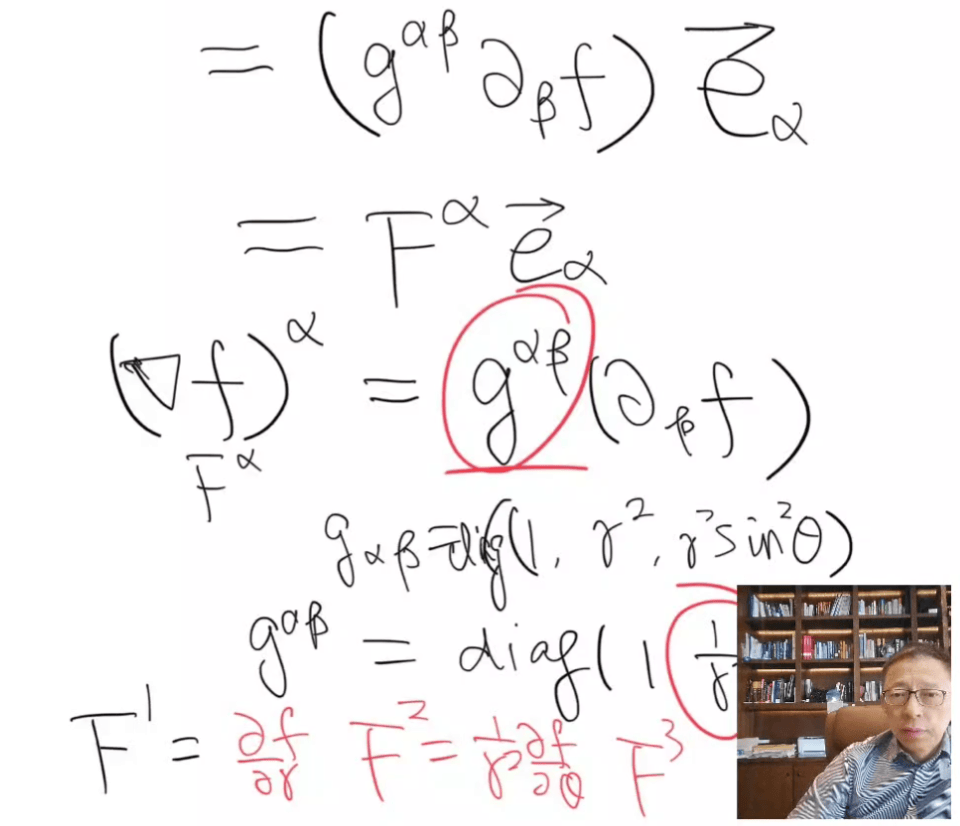 = (g^{αβ} ∂_β f) \vec{e}_α
= F^α \vec{e}_α
(∇f)^α = g^{αβ} (∂_β f)
F^α
g_{αβ} = diag(1, r², r² sin²θ)
g^{αβ} = diag(1 1/r
F^1 = ∂f/∂r F^2 = 1/r² ∂f/∂θ F^3